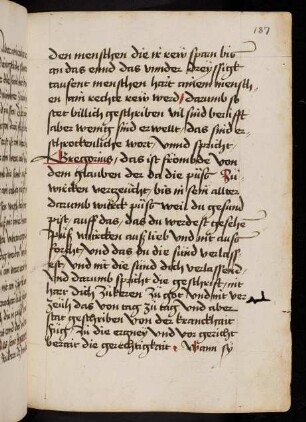 187
den mensthen die ir rew span bis
an das ennd das vnnder dreyssigk
tausent mensthen hart ainem mensth
en sein rechte rew werd darumb so
stet billich gesthriben vil sind berüfft
aber wenig sind erwellt / das sind er
sthrockenliche wort / vnnd spricht
Gregorius / das ist frömbde von
dem glauben der da die püss
würcken verzeucht / bis in sein allter
darumb würck püss weil du gesund
pist / auff das / das du werdest gesehen
püss würcken aus lieb vnd nit aus
forcht / vnd das du die sünd verlass
est / vnd nit die sünd dich verlassend
vnd darumb spricht die gesthrifft / nit
harr dich zükeren zü got vnd nit ver
zeüch das von tag zü tag vnd aber
stat gesthriben vor der kranckhait
füg zü die ertzney vnd vor gericht
berait die gerechtigkait wann sy